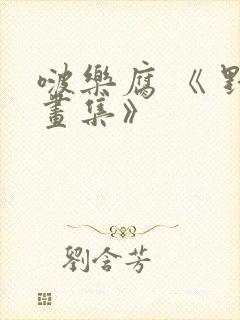 啵樂腐《
畫集》
劉含芳